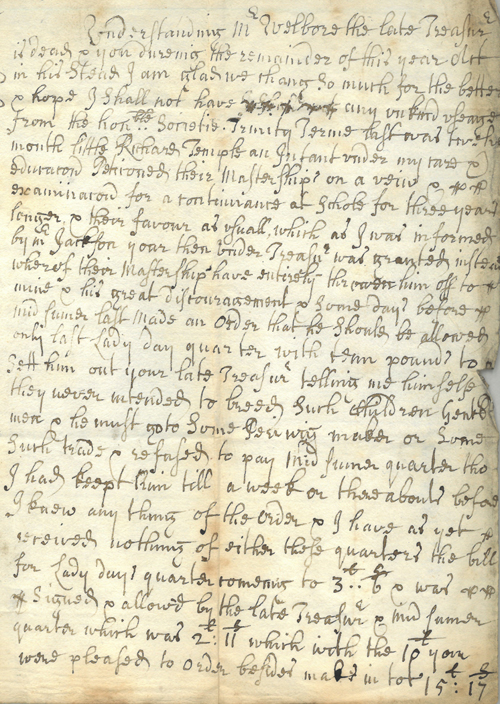 Vnderstanding Mr Welbore the late Treasur
is dead & you dureing the remainder of this year Elct
in his Stead I am glad we chang So much for the better
& hope I Shall not have any vnkind vseage
from the honble Societie. Trinity Terme last was twelve
month little Richard Temple an Infant vnder my care &
educacon Petioned their Masterships on a veiw &
examinacon for a continuance at Schole for three years
longer & their favour as vsuall, which as I was informed
by mr Jackson your then vnder Treasr was granted instead
wherof their Mastership have entirely throwen him off to
mine & his great discouragement & Some days before
mid sumer last made an Order that he Should be allowed
only last Lady day quarter with tenn pounds to
Sett him out your late Treasur telling me himselfe
they never intended to breed Such Children Gentle
men & he must go to Some Perriwig maker or Some
Such trade & refused to pay Mid Sumer quarter tho
I had keept him till a week or thereabouts before
I knew any thing of the Order & I have as yet
received nothing of either these quarters the bill
for Lady days quarter comeing to 3£..6s & was
Signed & allowed by the late Treasur & mid sumer
quarter which was 2£:11s which with the 10£ you
were pleased to Order besides makes in tot 15£:17s